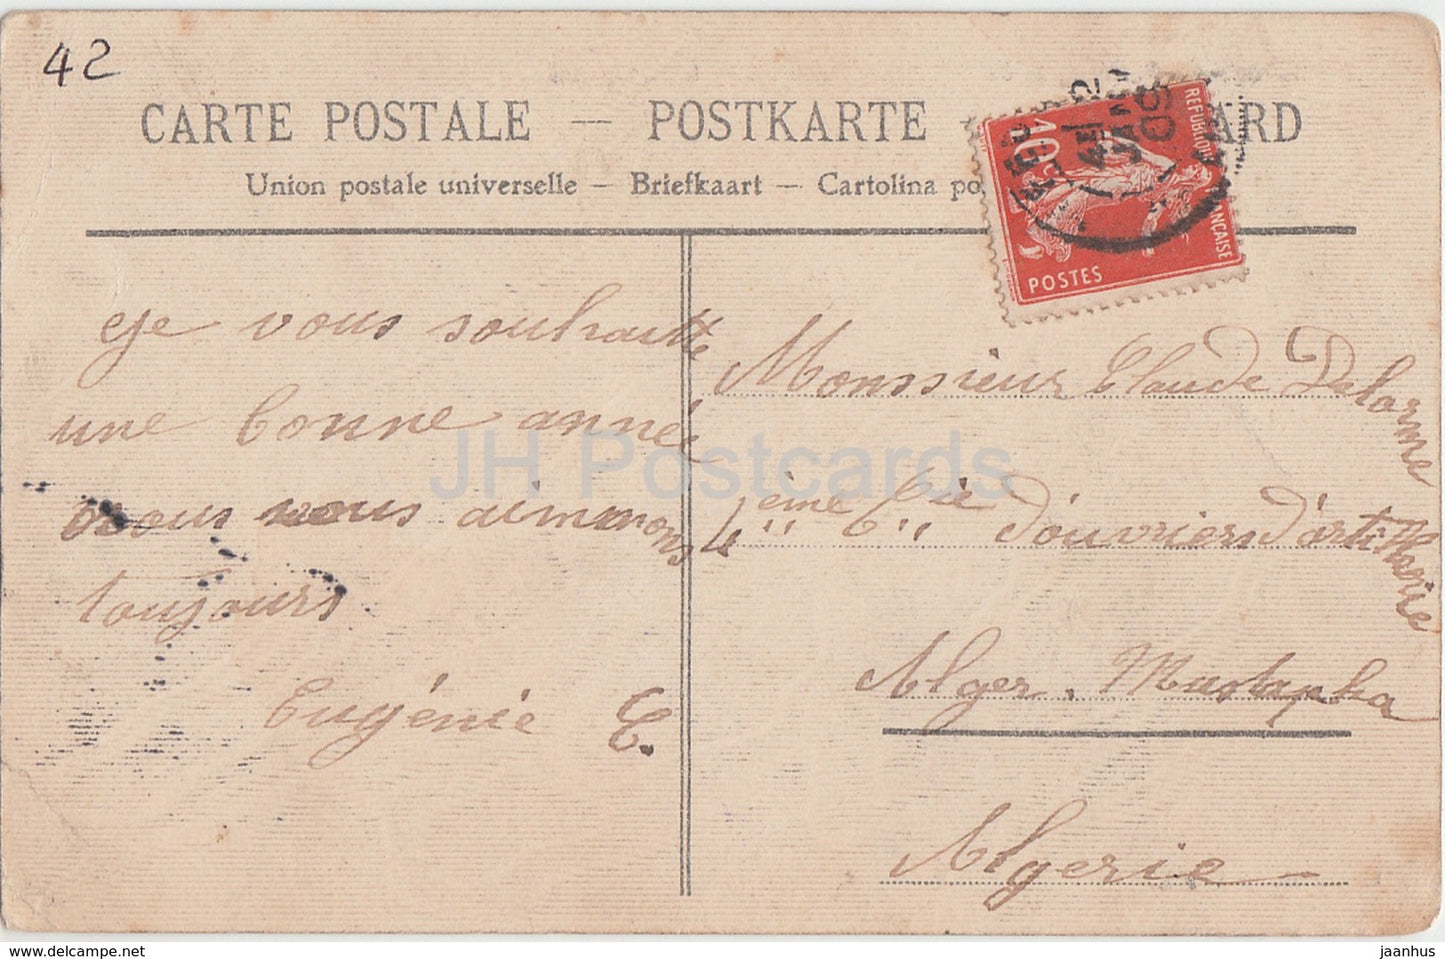 42
CARTE POSTALE — POSTKARTE — ARD
Union postale universelle — Briefkaart — Cartolina po
REPUBLIQUE FRANÇAISE
10c
POSTES
2
JANV
09
Je vous souhaitte
une bonne année
nous vous aimmrons
toujours
Eugénie C.
Monssieur Claude Delorme
4ème Cie d'ouvriers d'artillerie
Alger. Mustapha
Algerie
JH Postcards
https://www.delcampe.net
jaanhus